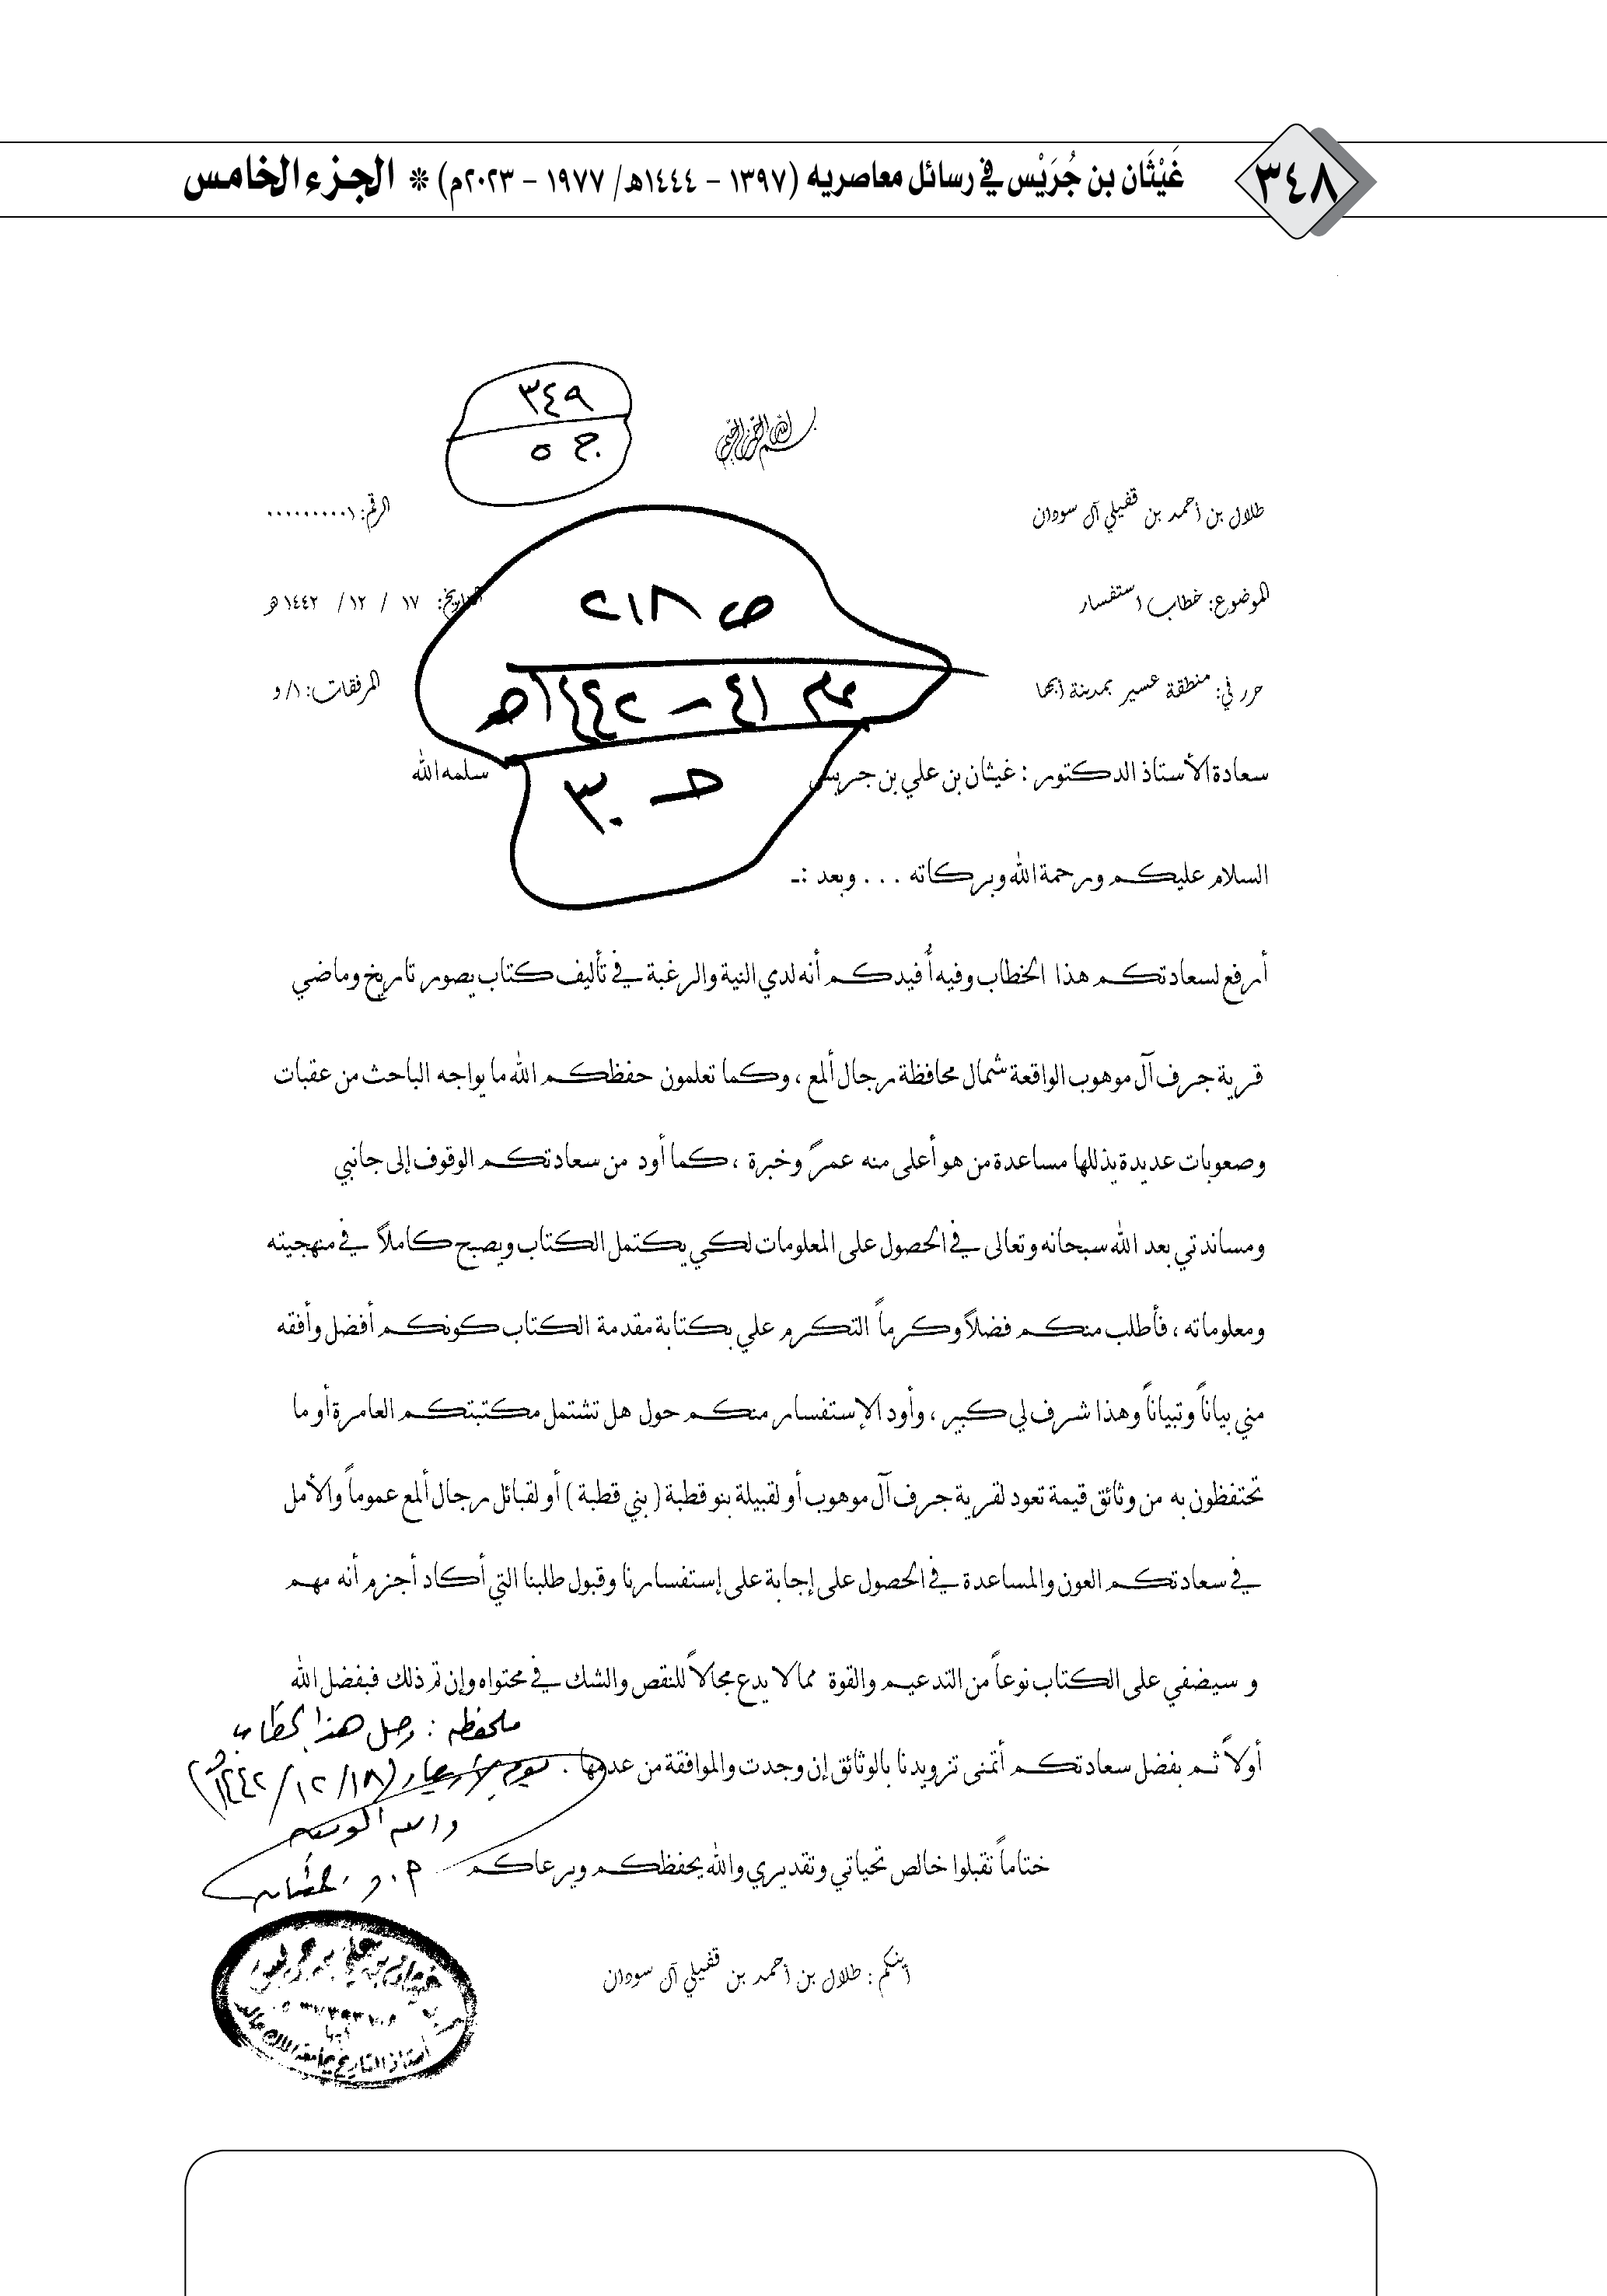 ٣٤٨
غَيْثَان بن جُرَيْس في رسائل معاصريه (١٣٩٧ – ١٤٤٤هـ/ ١٩٧٧ – ٢٠٢٣م) * الجزء الخامس
٣٤٩
ج ٥
بسم الله الرحمن الرحيم
طلال بن أحمد بن قفيلي آل سودان
الرقم: ٠٠٠٠٠٠٠٠٠١
ص ٢١٨
الموضوع: خطاب استفسار
التاريخ: ١٧ / ١٢ / ١٤٤٢هـ
عام ٤١ – ١٤٤٢هـ
حرر في: منطقة عسير بمدينة أبها
المرفقات: ١/ و
سعادة الأستاذ الدكتور : غيثان بن علي بن جريس سلمه الله
حـ ٣٠
السلام عليكم ورحمة الله وبركاته ... وبعد :ـ
أرفع لسعادتكم هذا الخطاب وفيه أفيدكم أنه لدي النية والرغبة في تأليف كتاب يصور تاريخ وماضي
قرية جرف آل موهوب الواقعة شمال محافظة رجال ألمع ، وكما تعلمون حفظكم الله ما يواجه الباحث من عقبات
وصعوبات عديدة يذللها مساعدة من هو أعلى منه عمرً وخبرة ، كما أود من سعادتكم الوقوف إلى جانبي
ومساندتي بعد الله سبحانه وتعالى في الحصول على المعلومات لكي يكتمل الكتاب ويصبح كاملاً في منهجيته
ومعلوماته ، فأطلب منكم فضلاً وكرماً التكرم علي بكتابة مقدمة الكتاب كونكم أفضل وأفقه
مني بياناً وتبياناً وهذا شرف لي كبير ، وأود الإستفسار منكم حول هل تشتمل مكتبتكم العامرة أو ما
تحتفظون به من وثائق قيمة تعود لقرية جرف آل موهوب أو لقبيلة بنو قطبة ( بني قطبة ) أو لقبائل رجال ألمع عموماً والأمل
في سعادتكم العون والمساعدة في الحصول على إجابة على إستفسارنا وقبول طلبنا التي أكاد أجزم أنه مهم
و سيضفي على الكتاب نوعاً من التدعيم والقوة مما لا يدع مجالاً للنقص والشك في محتواه وإن تم ذلك فبفضل الله
أولاً ثم بفضل سعادتكم أتمنى تزويدنا بالوثائق إن وجدت والموافقة من عدمها .
ملحظه : وصل هذا الخطاب
يوم الأربعاء (١٨/ ١٢/ ١٤٤٢هـ)
والله الموفق
ختاماً تقبلوا خالص تحياتي وتقديري والله يحفظكم ويرعاكم
أبنكم : طلال بن أحمد بن قفيلي آل سودان
غيثان بن علي بن جريس
أبها
أستاذ التاريخ بجامعة الملك خالد